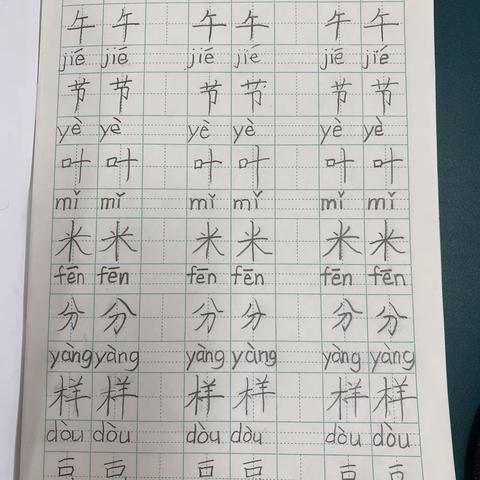 午 午 午 午 午 午
jié jié jié jié jié jié
节 节 节 节 节 节
yè yè yè yè yè yè
叶 叶 叶 叶 叶 叶
mǐ mǐ mǐ mǐ mǐ mǐ
米 米 米 米 米 米
fēn fēn fēn fēn fēn fēn
分 分 分 分 分 分
yàng yàng yàng yàng yàng yàng
样 样 样 样 样 样
dòu dòu dòu dòu dòu dòu
豆 豆 豆 豆 豆 豆